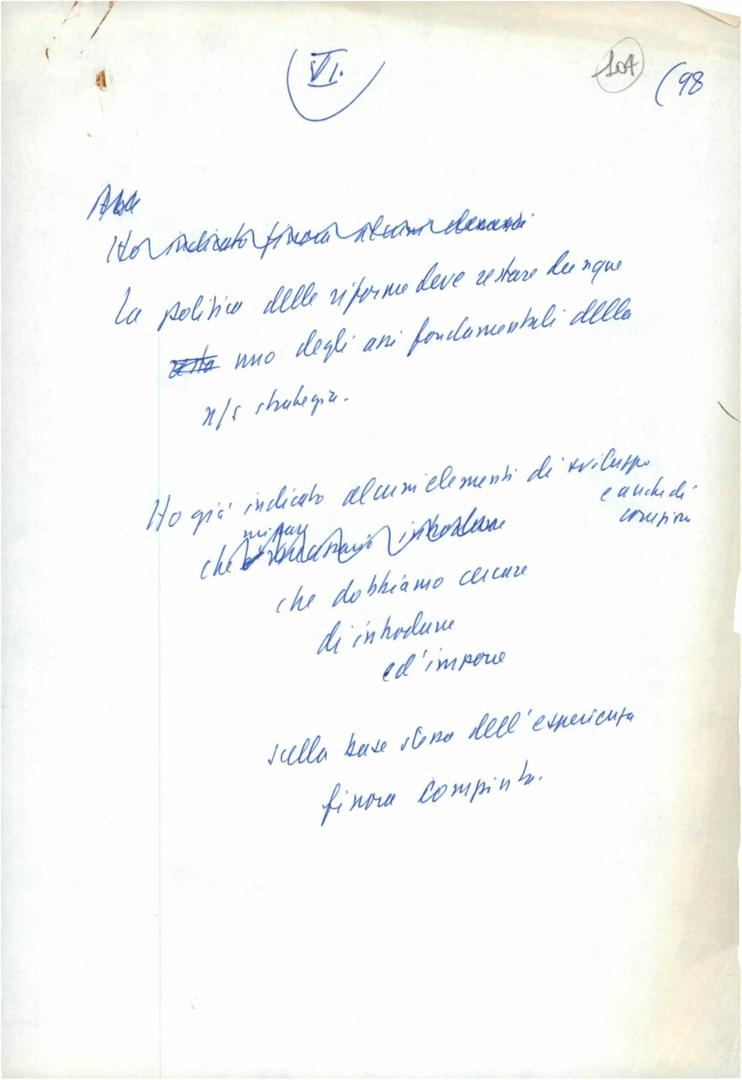 VI.
107
(98
Ho indicato finora alcuni elementi
La politica delle riforme deve restare dunque
resta uno degli assi fondamentali della
n/s strategia.
Ho già indicato alcuni elementi di sviluppo
e anche di
che introdurre
che dobbiamo cercare
di introdurre
ed imporre
sulla base stessa dell'esperienza
finora compiuta.